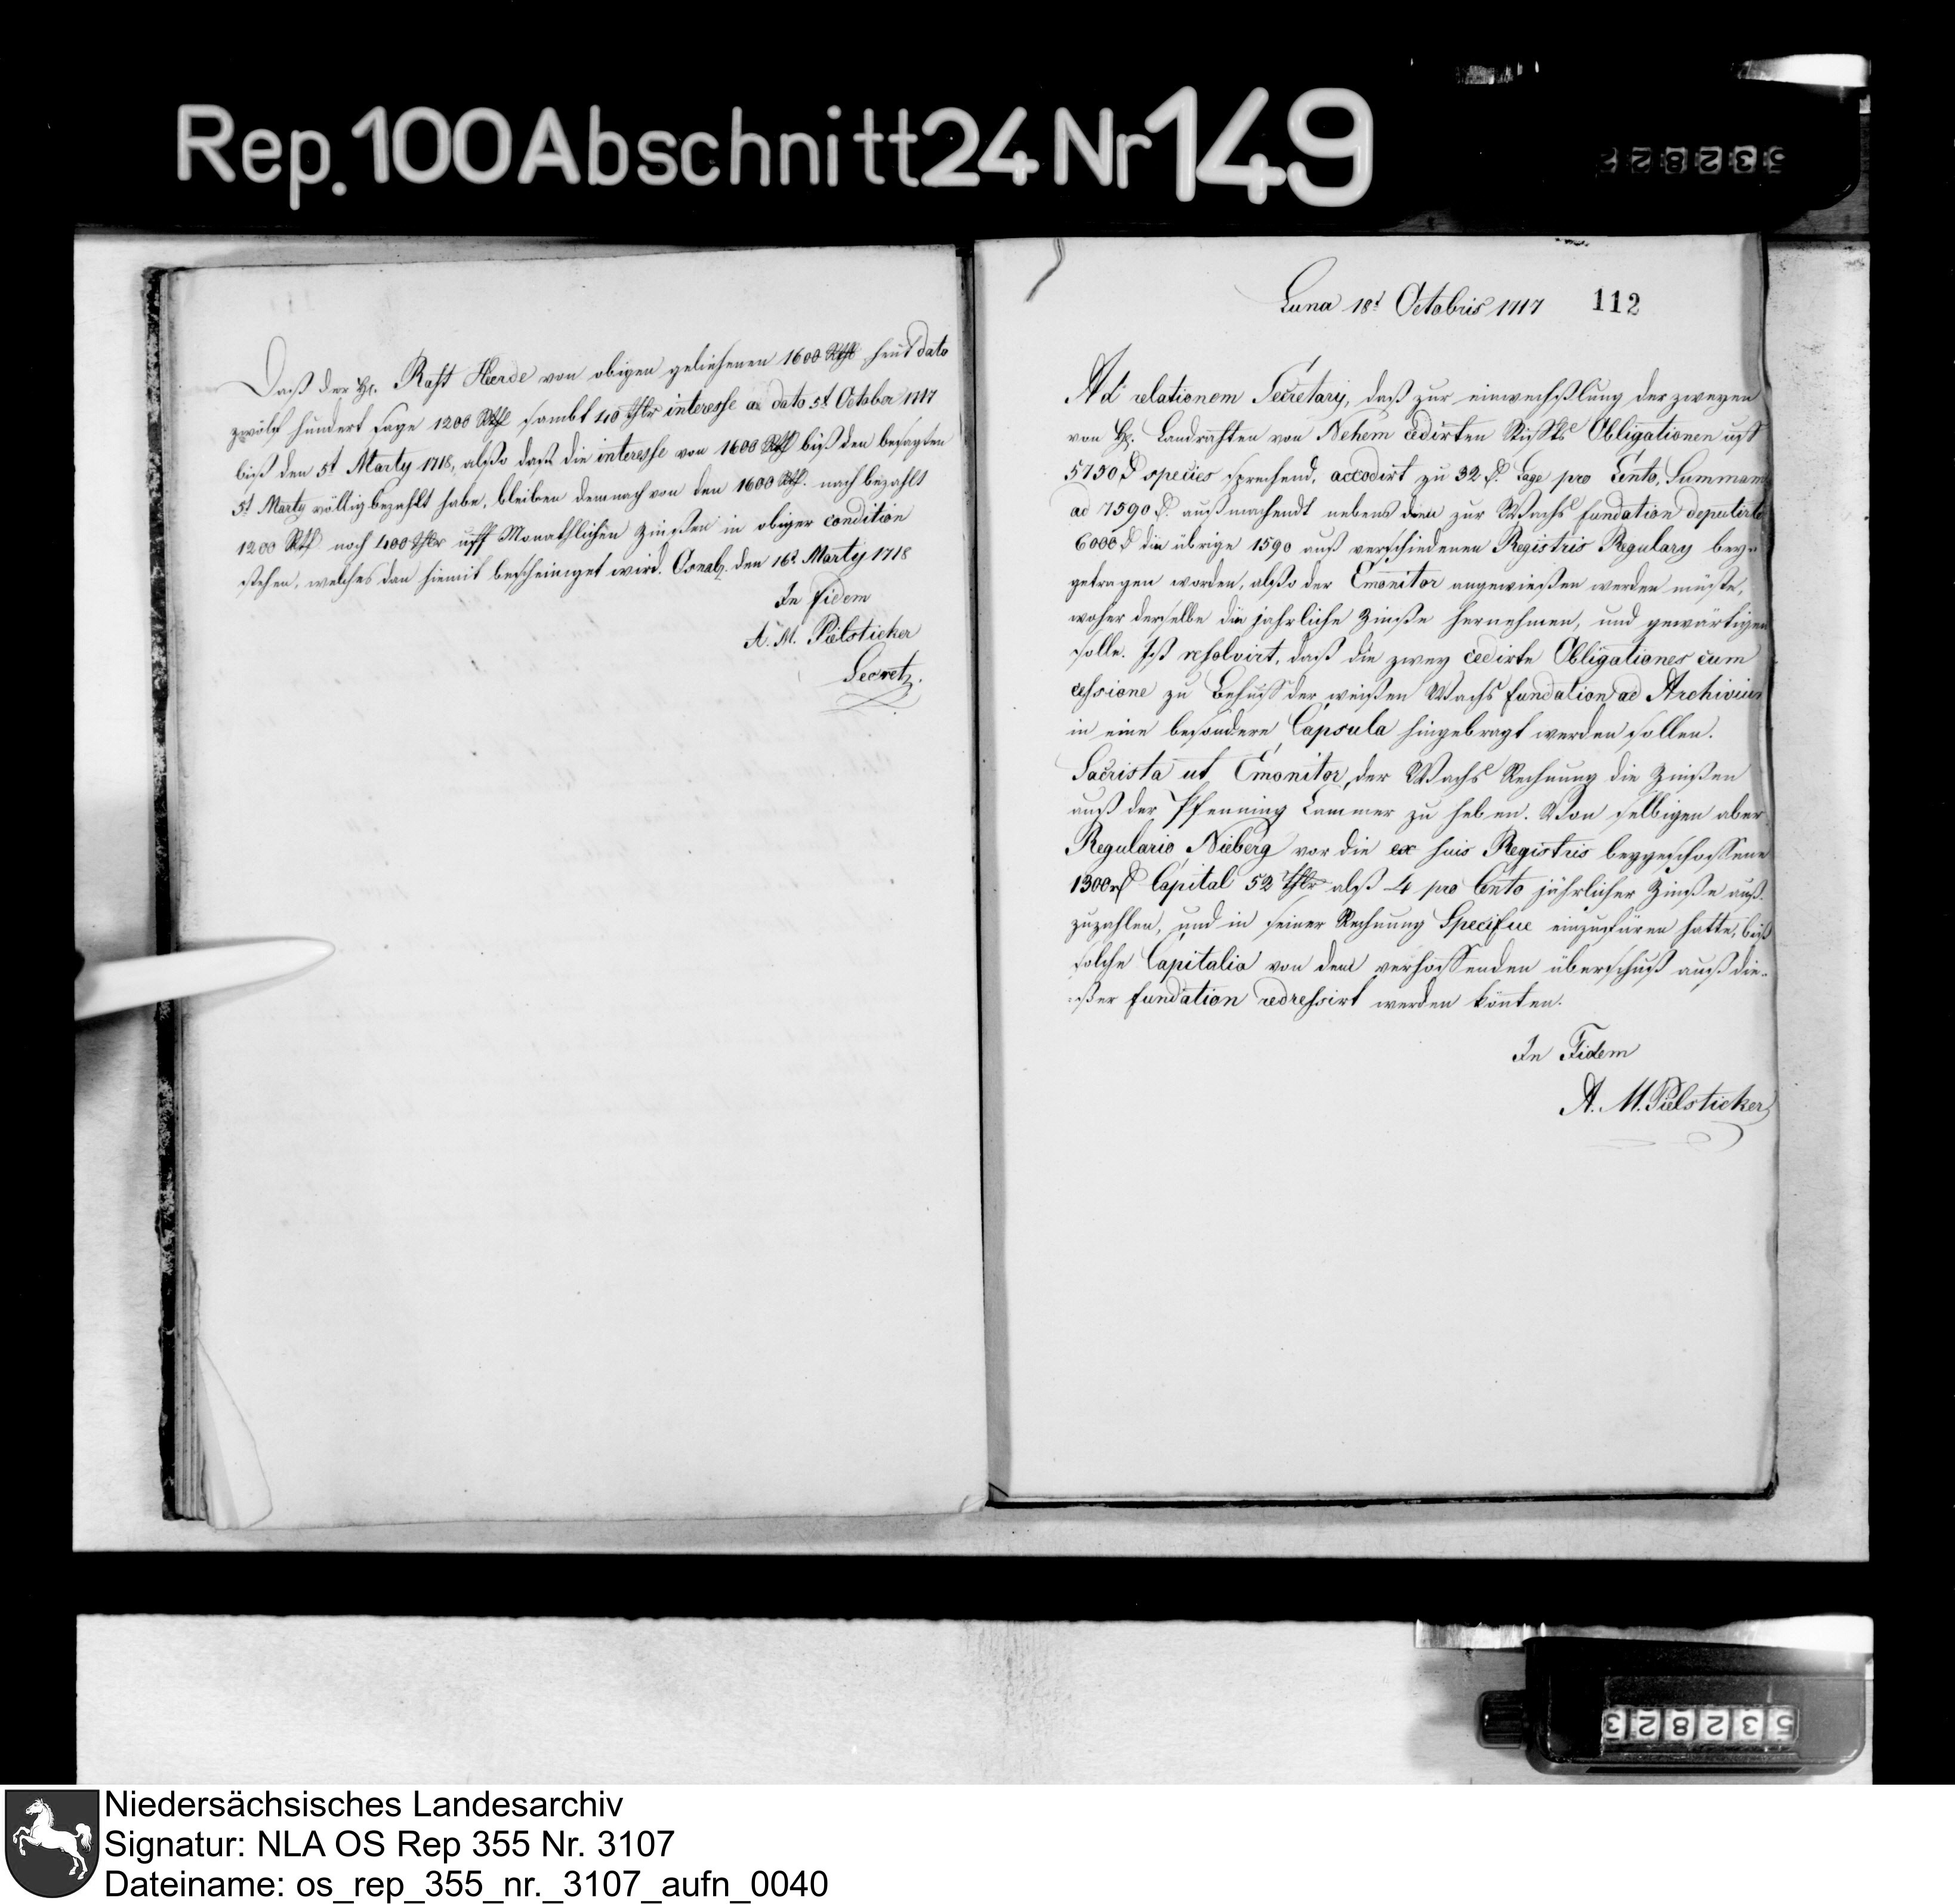 Rep. 100 Abschnitt 24 Nr 149
532822
Daß der H. Raht Heerde von obigen geliehenen 1600 Rthl heut dato
zwölf hundert sage 1200 Rthl sambt 40 Thlr interesse a dato 5t October 1717
biß den 5t Martÿ 1718, alßo daß die interesse von 1600 Rthl biß den besagten
5t Martÿ völlig bezahlt habe, bleiben demnach von den 1600 Rthl. nach bezahlt
1200 Rthl noch 400 Thlr uff Monathlichen Zinßen in obiger condition
stehen, welches dan hiemit bescheiniget wird. Osnab. den 16t. Martÿ 1718
In Fidem
A. M. Pielsticker
Secret.
Luna 18t Octobris 1717 112
Ad relationem Secretarÿ, daß zur einwechßlung der zweyen
von H. Landrahten von Nehem cedirten Obligationen
5750 species sprechend, accodirt zu 32 Lage pro Cento, Summam
ad 7590 außmachendt nebens denen zur Wachs fundation deputirte
6000 die übrige 1590 auß verschiedenen Registris Regularÿ bey-
getragen worden, alßo der Emonitor angewießen werden müste,
woher derselbe die jahrliche Zinße hernehmen, und gewärtigen
solle. Ist resolvirt, daß die zwey cedirte Obligationes cum
cessione zu Behuff der weißen Wachs fundation ad Archivium
in eine besondere Capsula hingebragt werden sollen.
Sacrista ut Emonitor der Wachs Rechnung die Zinßen
auß der Pfenning Cammer zu heben. Von selbigen aber
Regulario Nieberg vor die ex suis Registris beygeschossene
1300 Capital 52 Thlr alß 4 pro Cento jährlicher Zinße auß-
zuzahlen, und in seiner Rechnung Specifice einzuführen hatte, biß
solche Capitalia von dem verhoffenden überschuß auß die-
-ßer fundation redressirt werden könten.
In Fidem
A. M. Pielsticker
532823
Niedersächsisches Landesarchiv
Signatur: NLA OS Rep 355 Nr. 3107
Dateiname: os_rep_355_nr._3107_aufn_0040